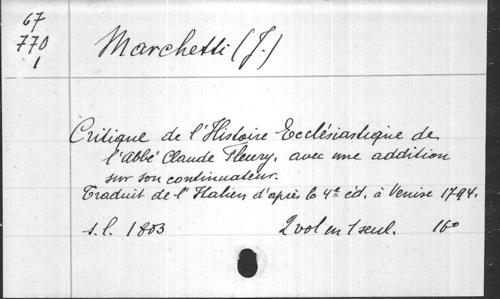 67
770
1
Marchetti (J.)
Critique de l'Histoire Ecclésiastique de
l'abbé Claude Fleury, avec une addition
sur son continuateur.
Traduit de l'Italien d'après la 4e éd. à Venise 1794.
s.l. 1803 2 vol en 1 seul. 16°